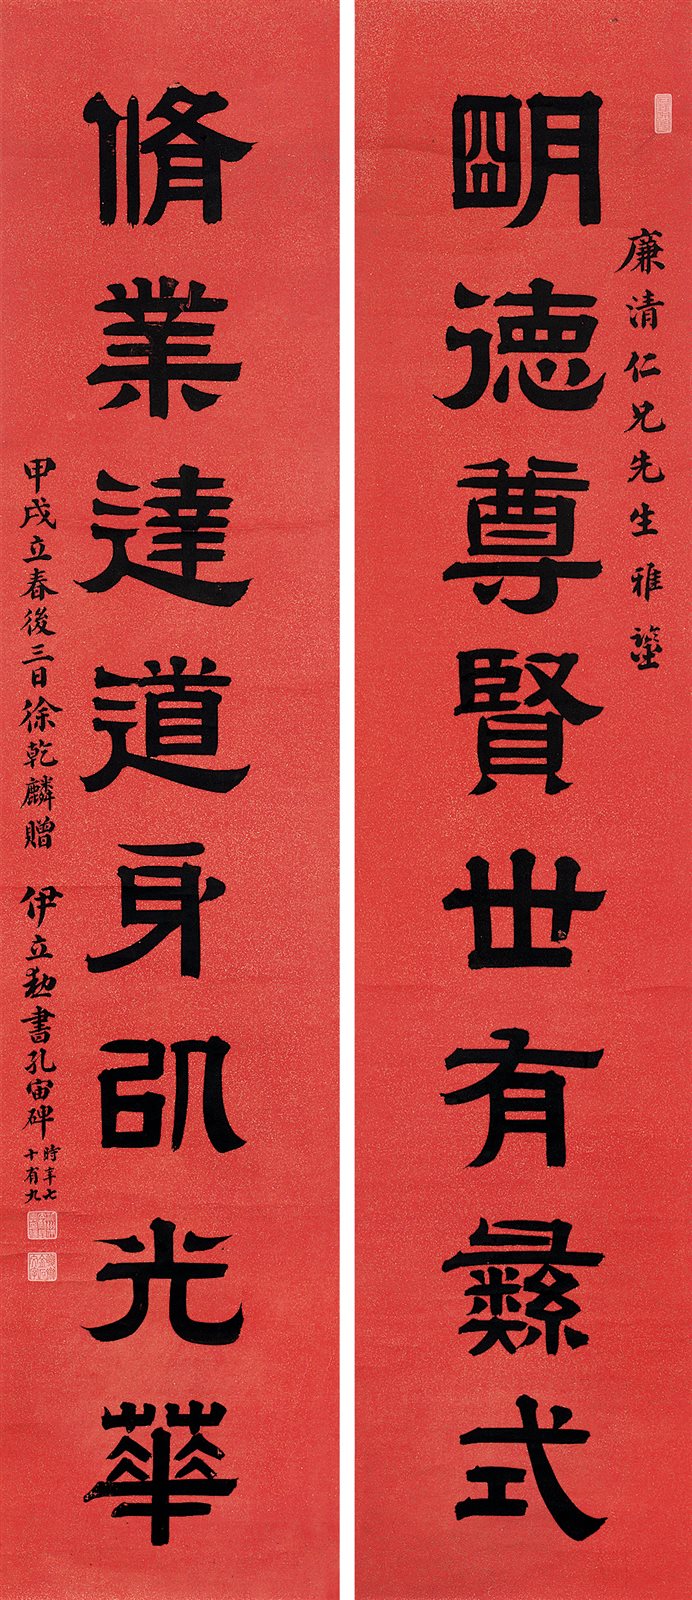 廉清仁兄先生雅鑒
明德尊賢世有彝式
脩業達道身㠯光華
甲戌立春後三日徐乾麟贈 伊立勳書孔宙碑
時年七
十有九